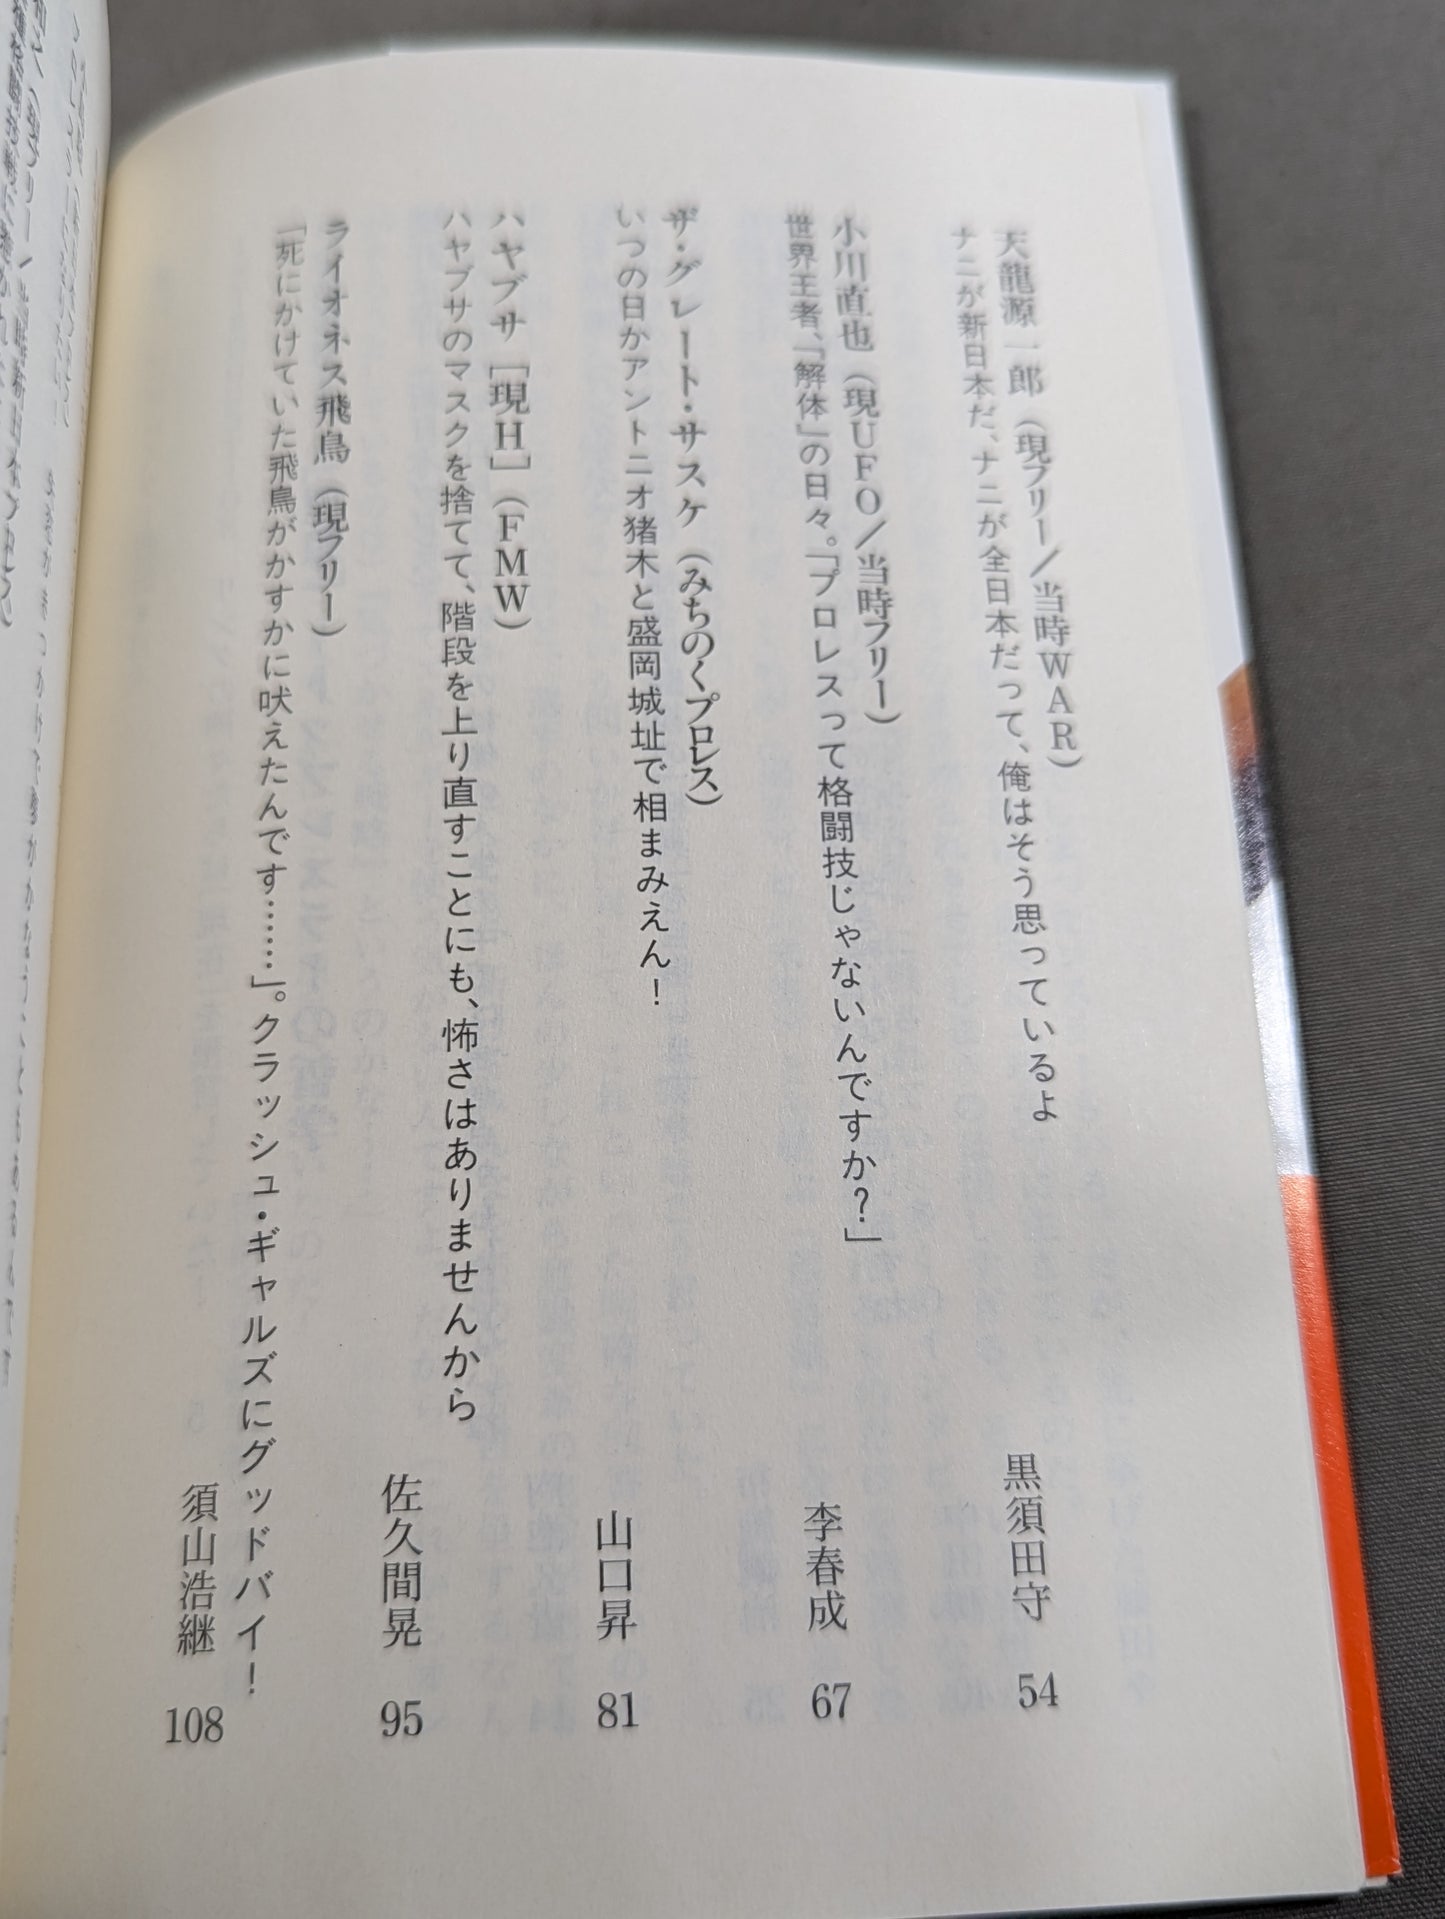 天龍源一郎（現フリー／当時WAR）
ナニが新日本だ、ナニが全日本だって、俺はそう思っているよ
黒須田守 54
小川直也（現UFO／当時フリー）
世界王者、「解体」の日々。「プロレスって格闘技じゃないんですか？」
李春成 67
ザ・グレート・サスケ（みちのくプロレス）
いつの日かアントニオ猪木と盛岡城址で相まみえん！
山口昇 81
ハヤブサ［現H］（FMW）
ハヤブサのマスクを捨てて、階段を上り直すことにも、怖さはありませんから
佐久間晃 95
ライオネス飛鳥（現フリー）
「死にかけていた飛鳥がかすかに吠えたんです……」。クラッシュ・ギャルズにグッドバイ！
須山浩継 108